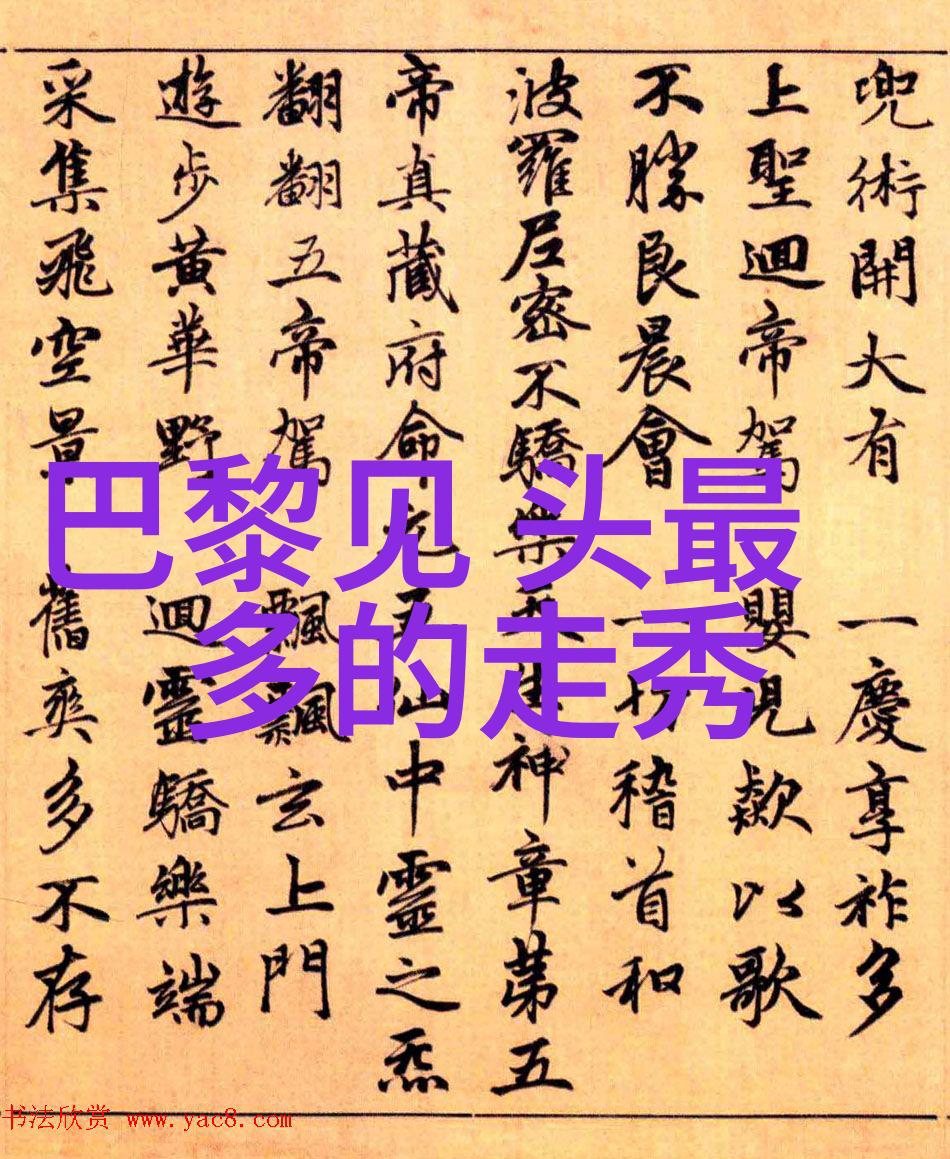 兜術開大有 一慶享祚多
上聖迴帝駕 嬰児歘以歌
不勝良晨會 一切稽首和
波羅尼密不驕樂天生神章第五
帝真藏府命元五仙中靈之炁
翻翻五帝駕 飄飄玄上門
遊步黃華野 迴靈驕樂端
采集飛空景 舊爽多不存
巴黎见 头最
多的走秀
书法欣赏 www.yac8.com